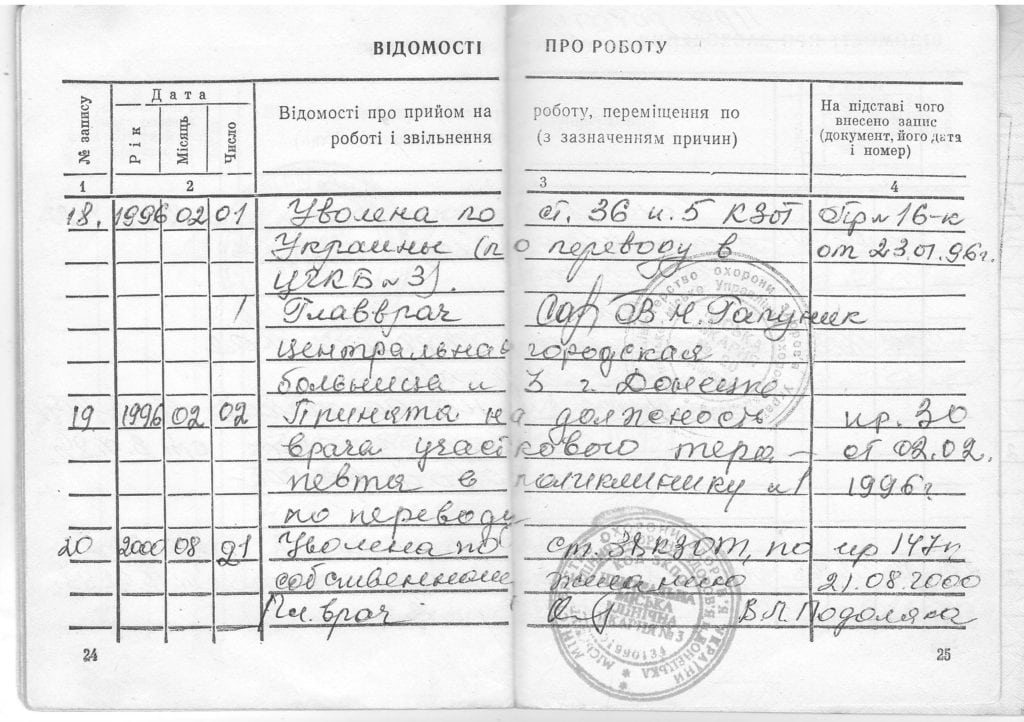 ВІДОМОСТІ ПРО РОБОТУ
№ запису
Дата
Рік
Місяць
Число
Відомості про прийом на роботу, переміщення по
роботі і звільнення (з зазначенням причин)
На підставі чого
внесено запис
(документ, його дата
і номер)
1 2 3 4
18. 1996 02 01 Уволена по ст. 36 п. 5 КЗоТ Пр № 16-к
Украины (по переводу в от 23.01.96г.
ЦГКБ №3).
Главврач В.Н.
центральная городская
больница № 3 г. Донецка
19 1996 02 02 Принята на должность пр. 30
врача участкового тера- от 02.02.
певта в поликлинику №1 1996г
по переводу
20 2000 08 21 Уволена по ст. 38 КЗОТ, по пр 147к
собственному желанию 21.08.2000
Гл. врач В.Л. Подоляка
24 25